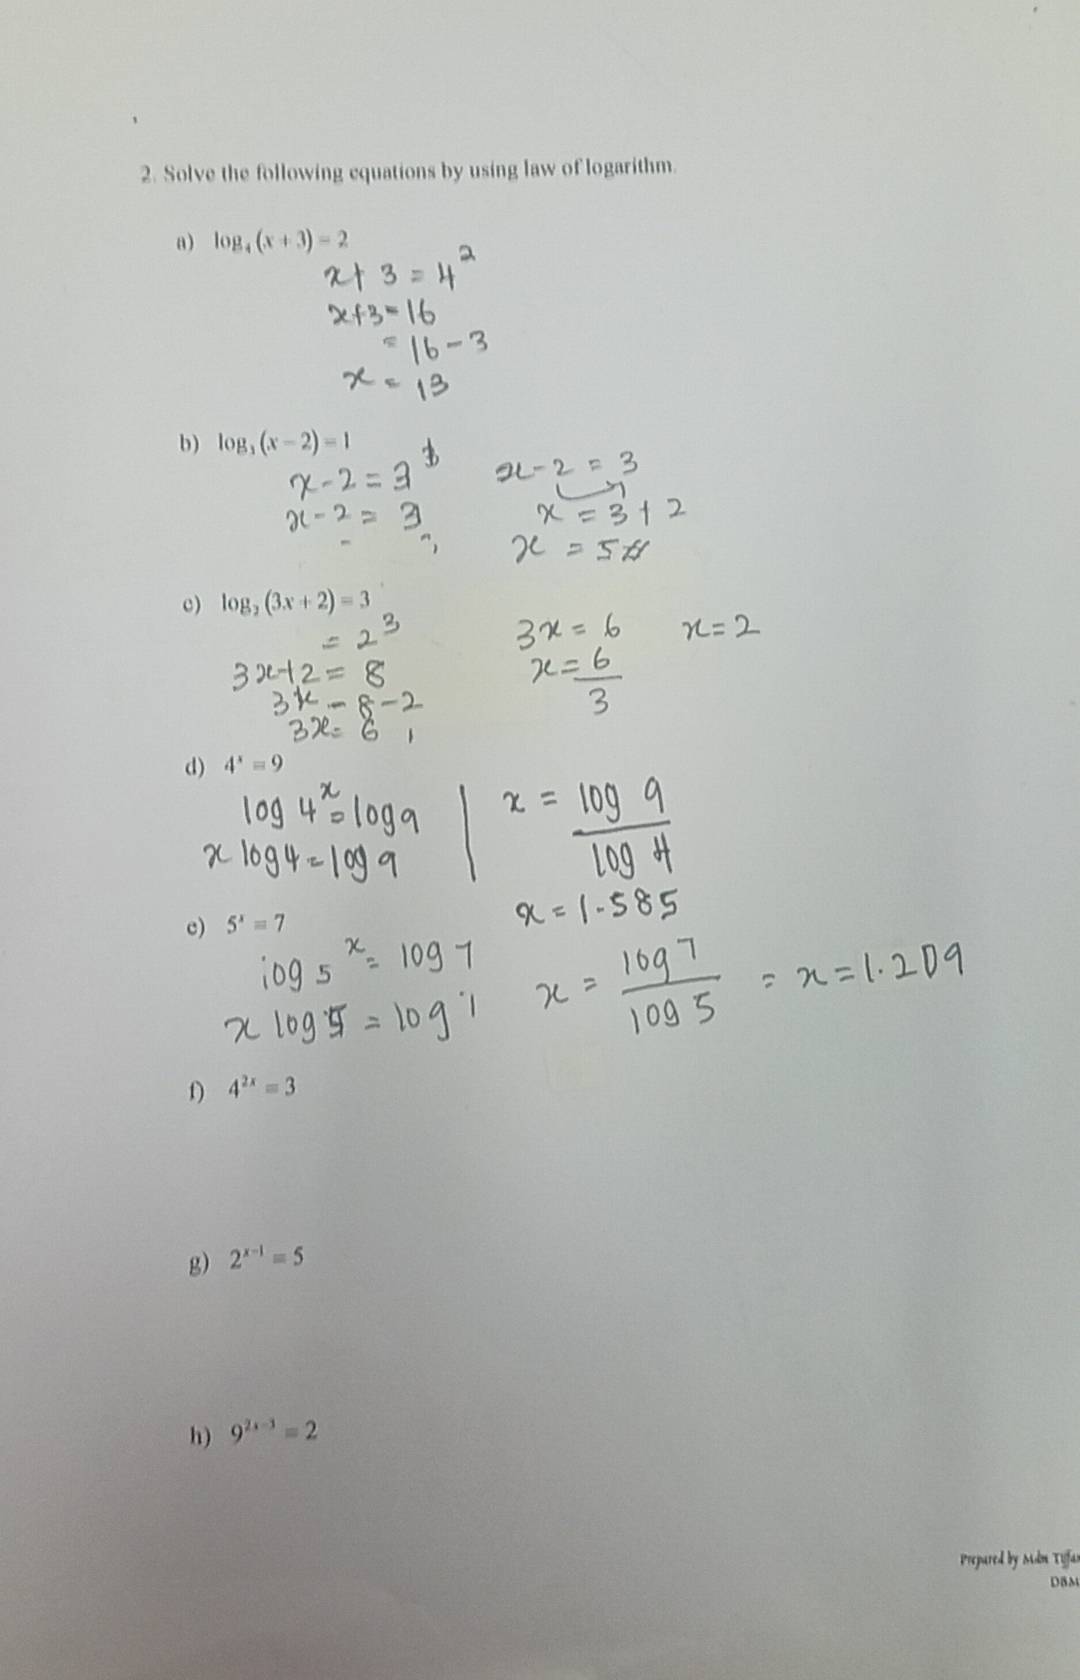 2. Solve the following equations by using law of logarithm.
a) log₄(x + 3) = 2
x + 3 = 4²
x+3=16
= 16 - 3
x = 13
b) log₃(x - 2) = 1
x - 2 = 3¹
x - 2 = 3
x - 2 = 3
x = 3 + 2
x = 5
c) log₂(3x + 2) = 3
= 2³
3x+2 = 8
3x = 8 - 2
3x = 6
3x = 6
x = 6/3
x = 2
d) 4ˣ = 9
log 4ˣ = log 9
x log 4 = log 9
x = log 9 / log 4
x = 1.585
e) 5ˣ = 7
log 5ˣ = log 7
x log 5 = log 7
x = log 7 / log 5 = x = 1.209
f) 4²ˣ = 3
g) 2ˣ⁻¹ = 5
h) 9²ˣ⁻³ = 2
Prepared by